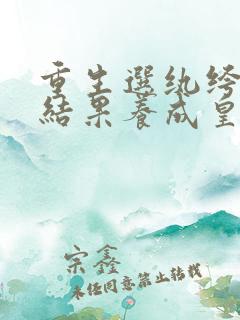 重生選纨绔
結果養成皇
宗鑫
未经同意禁止转载